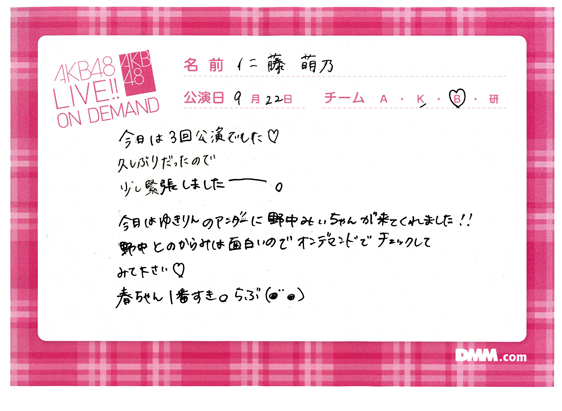 AKB48
LIVE!!
ON DEMAND
AKB
48
名前 仁藤 萌乃
公演日 9月22日 チーム A・K・B・研
今日は3回公演でした♡
久しぶりだったので
少し緊張しましたーー。
今日はゆきりんのアンダーに野中みぃちゃんが来てくれました!!
野中とのからみは面白いのでオンデマンドでチェックして
みて下さい♡
春ちゃん1番すき。らぶ
DMM.com